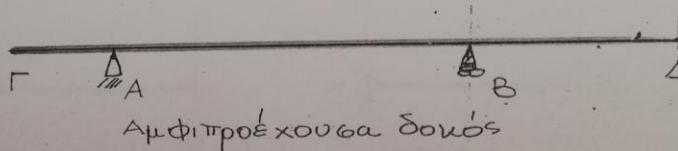 Γ A B
Αμφιπροέχουσα δοκός